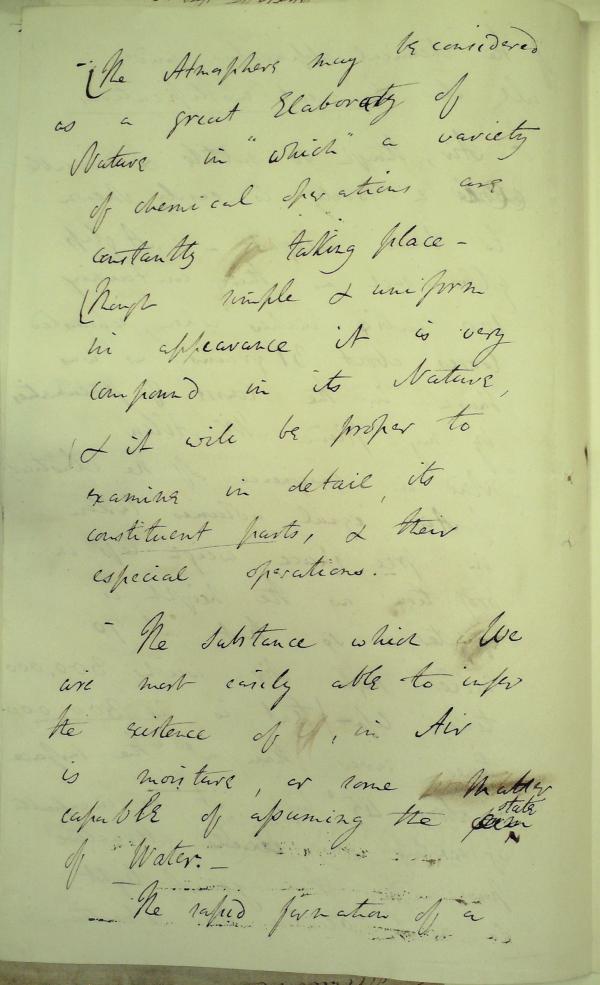 - The Atmosphere may be considered
as a great Elaboraty of
Nature in "which" a variety
of chemical operations are
constantly taking place -
Though simple & uniform
in appearance it is very
compound in its Nature,
& it will be proper to
examine in detail, its
constituent parts, & their
especial operations.
- The substance which We
are most easily able to infer
the existence of, in Air
is moisture, or some Matter
state
capable of assuming the form
of Water. -
- The rapid formation of a